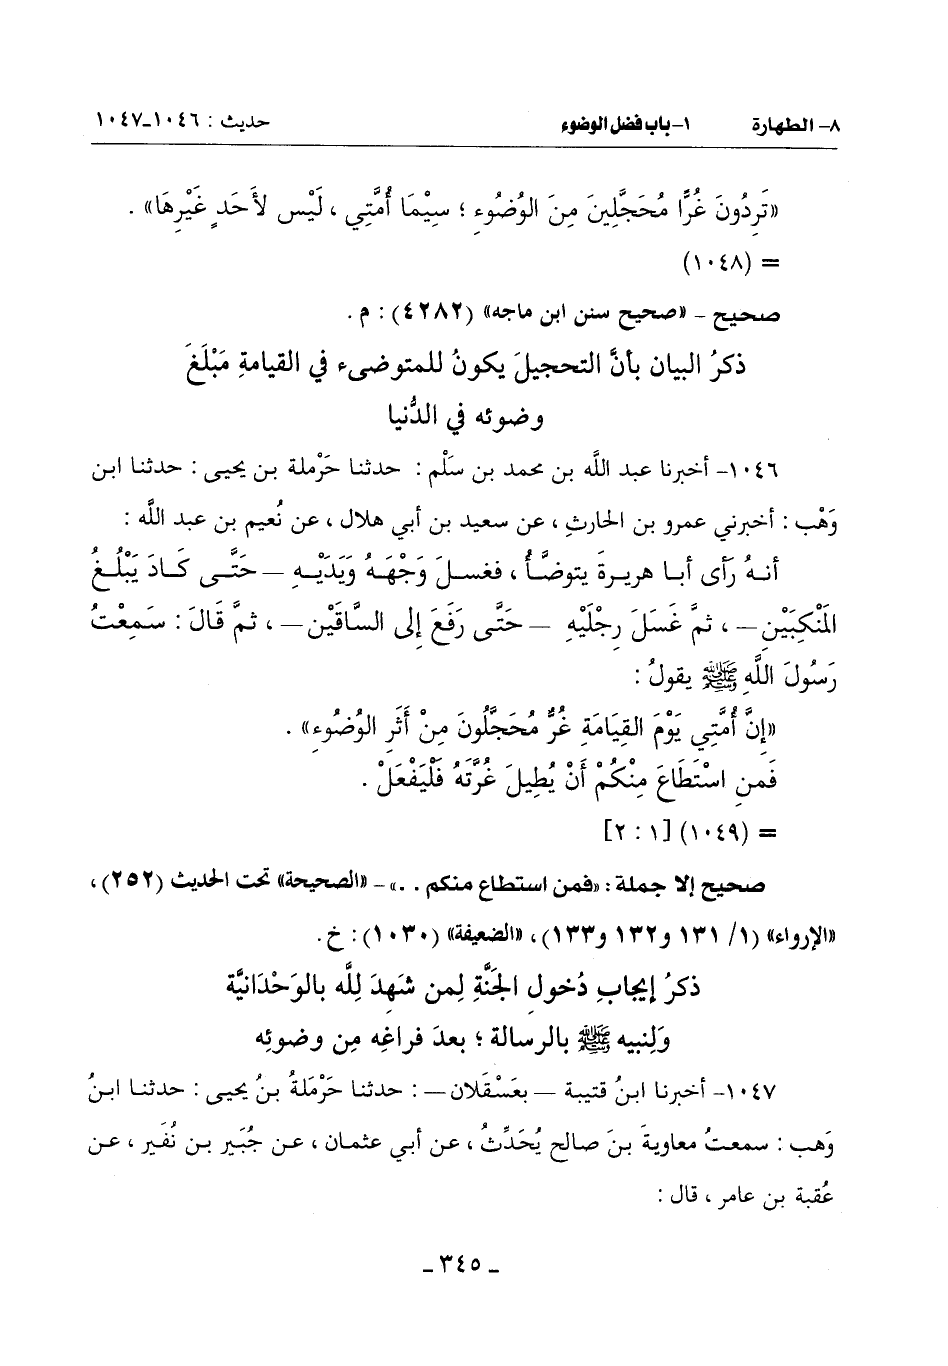 ٨- الطهارة ١- باب فضل الوضوء حديث : ١٠٤٦-١٠٤٧
«تَرِدُونَ غُرًّا مُحَجَّلِينَ مِنَ الوُضُوءِ ؛ سِيْمَا أُمَّتِي ، لَيْس لأَحَدٍ غَيْرِهَا» .
= (١٠٤٨)
صحيح - «صحيح سنن ابن ماجه» (٤٢٨٢) : م .
ذكرُ البيان بأنَّ التحجيلَ يكونُ للمتوضىء في القيامةِ مَبْلَغَ
وضوئه في الدُّنيا
١٠٤٦- أخبرنا عبد الله بن محمد بن سَلْم : حدثنا حَرْملة بن يحيى : حدثنا ابن
وَهْب : أخبرني عمرو بن الحارثِ ، عن سعيد بن أبي هلال ، عن نُعيم بن عبد الله :
أنهُ رَأى أبا هريرةَ يتوضَّأُ ، فغسلَ وَجْهَهُ وَيَدَيْهِ —حَتَّى كَادَ يَبْلُغُ
المَنْكِبَيْنِ— ، ثمَّ غَسَلَ رِجْلَيْهِ —حَتَّى رَفَعَ إِلى السَّاقَيْنِ— ، ثمَّ قَالَ : سَمِعْتُ
رَسُولَ اللَّهِ ﷺ يقولُ :
«إنَّ أُمَّتِي يَوْمَ القِيَامَةِ غُرٌّ مُحَجَّلُونَ مِنْ أَثَرِ الوُضُوءِ» .
فَمنِ اسْتَطَاعَ مِنْكُمْ أَنْ يُطِيلَ غُرَّتَهُ فَلْيَفْعَلْ .
= (١٠٤٩) [١ : ٢]
صحيح إلا جملة : «فمن استطاع منكم . .» - «الصحيحة» تحت الحديث (٢٥٢) ،
«الإرواء» (١/ ١٣١ و١٣٢ و١٣٣) ، «الضعيفة» (١٠٣٠) : خ .
ذكرُ إيجابِ دُخولِ الجَنَّةِ لِمن شَهِدَ لِلَّه بالوَحْدَانيَّة
وَلِنبيه ﷺ بالرسالة ؛ بعدَ فراغِه مِن وضوئِه
١٠٤٧- أخبرنا ابنُ قتيبة —بعَسْقَلان— : حدثنا حَرْملةُ بنُ يحيى : حدثنا ابنُ
وَهب : سمعتُ معاويةَ بنَ صالح يُحَدِّثُ ، عن أبي عثمان ، عن جُبَير بن نُفَير ، عن
عُقبة بن عامر ، قال :
- ٣٤٥ -